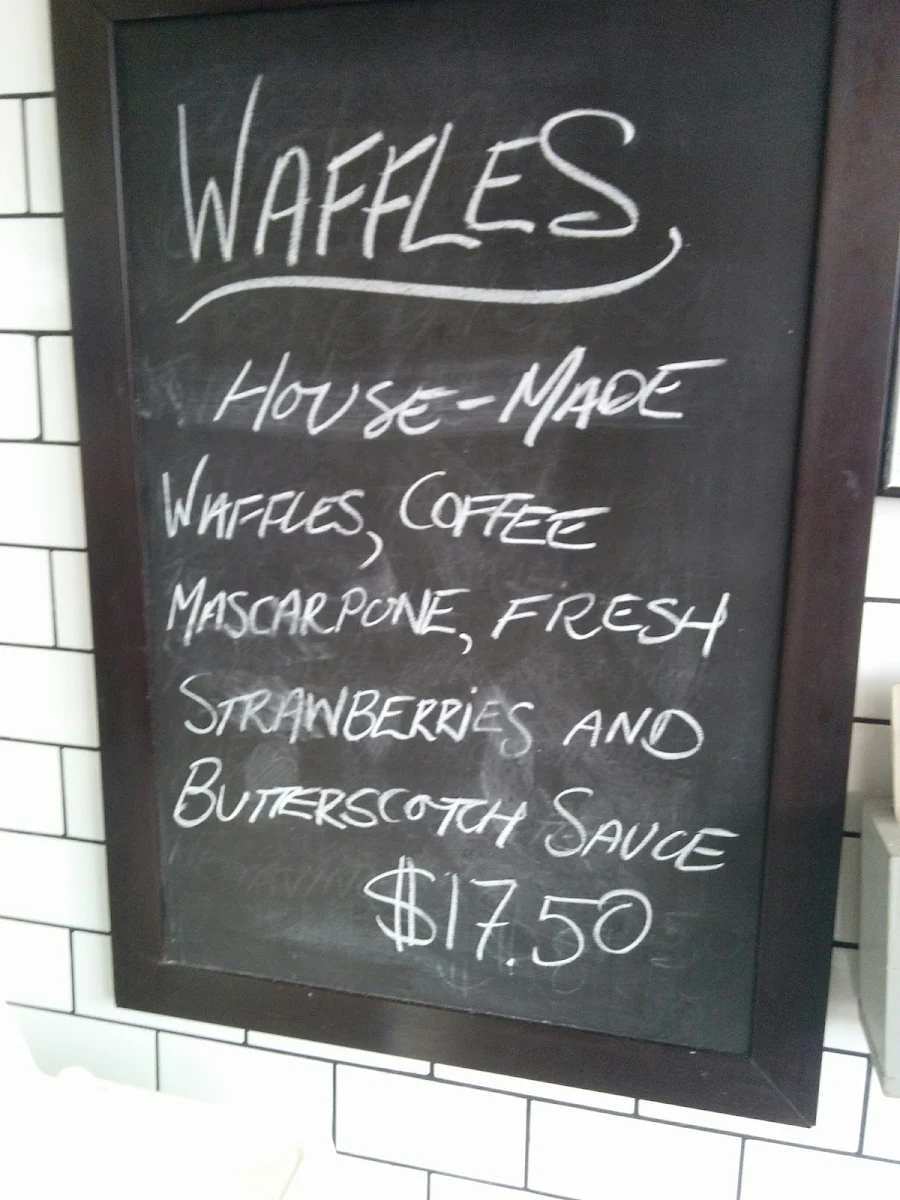 WAFFLES
HOUSE-MADE
WAFFLES, COFFEE
MASCARPONE, FRESH
STRAWBERRiES AND
BUTTERSCOTCH SAUCE
$17.50